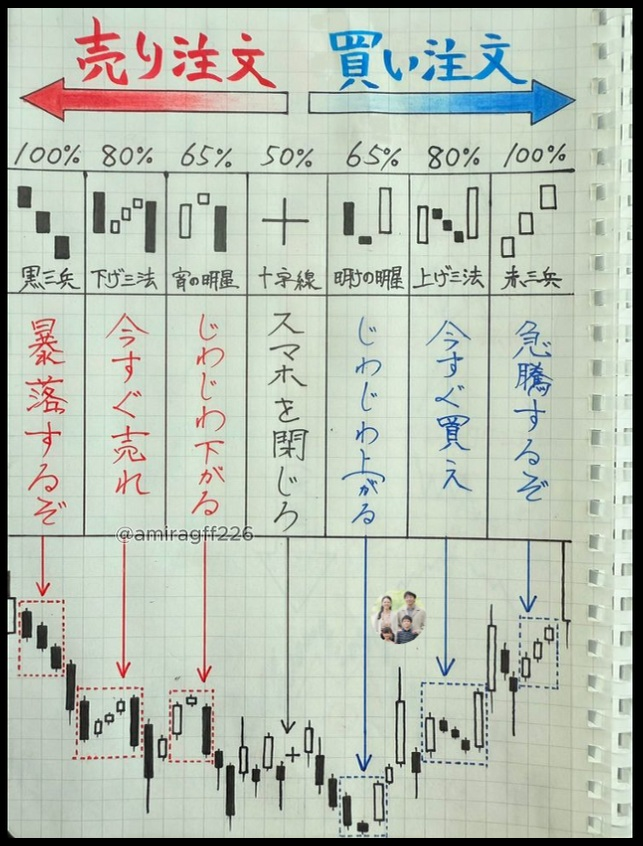 売り注文 買い注文
100% 80% 65% 50% 65% 80% 100%
黒三兵 下げ三法 宵の明星 十字線 明けの明星 上げ三法 赤三兵
暴落するぞ
今すぐ売れ
じわじわ下がる
スマホを閉じろ
じわじわ上がる
今すぐ買え
急騰するぞ
@amiragff226